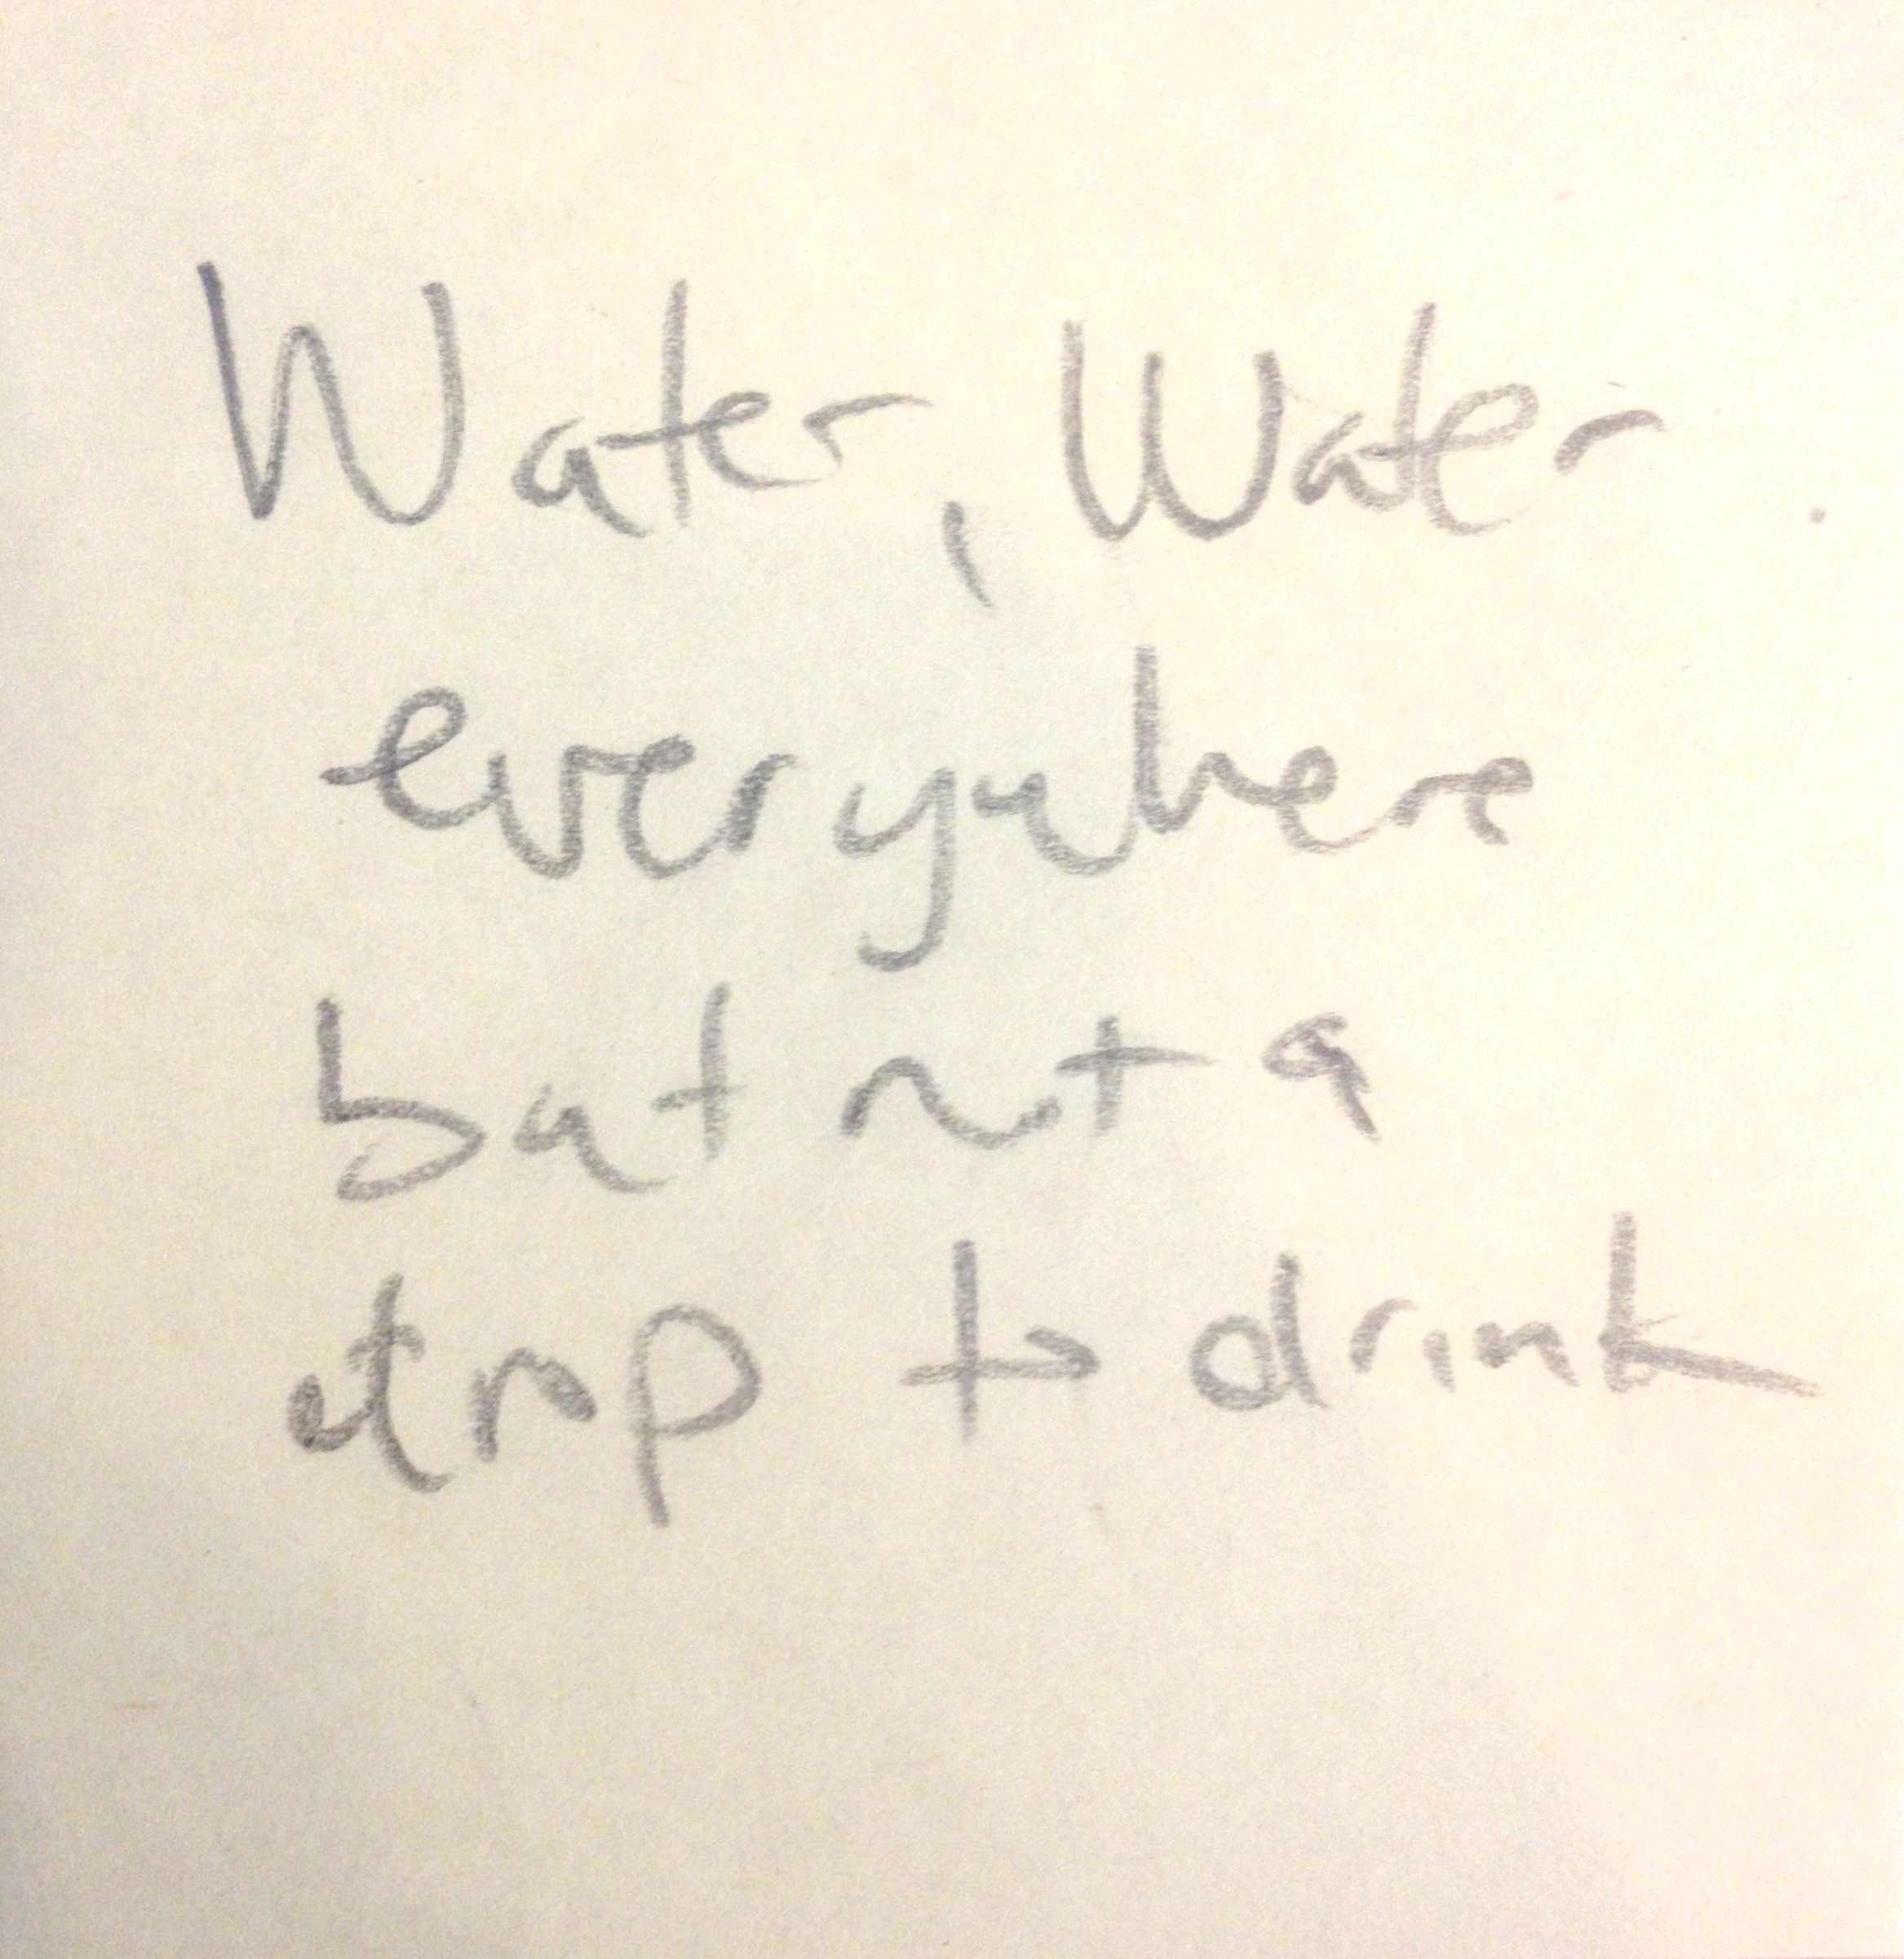 Water, Water
everywhere
but not a
drop to drink